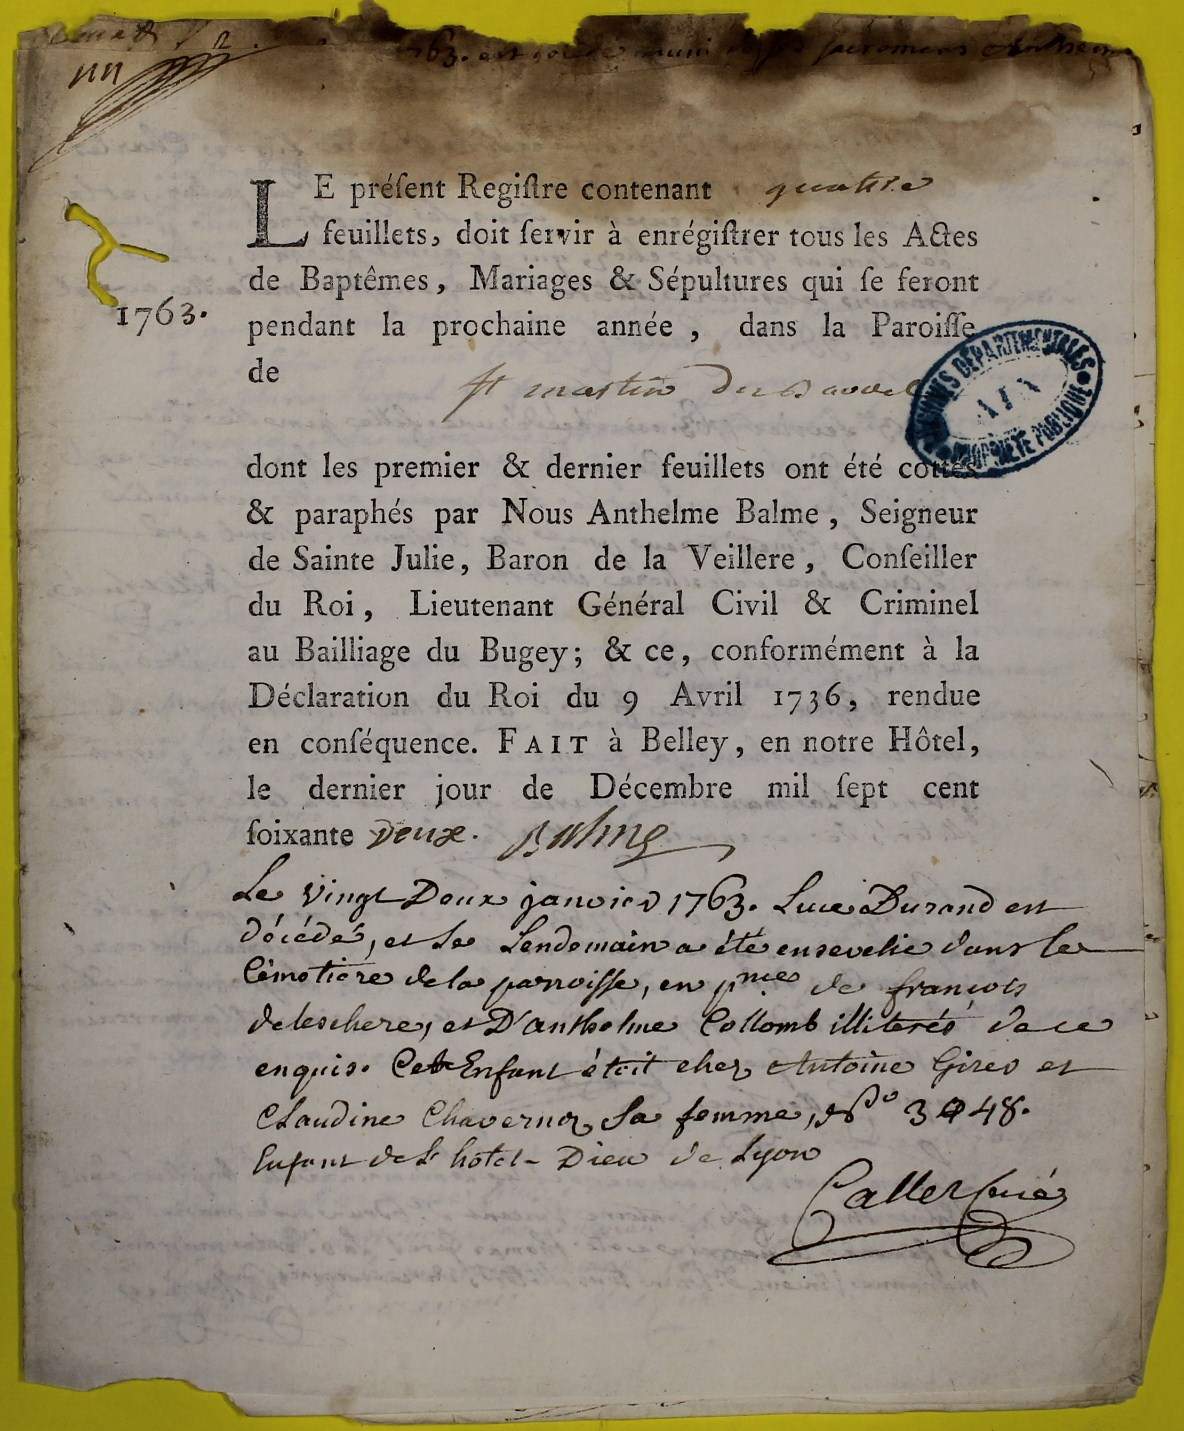 1763. est
LE préſent Regiſtre contenant quatre
feuillets, doit ſervir à enrégiſtrer tous les Actes
de Baptêmes, Mariages & Sépultures qui ſe feront
1763.
pendant la prochaine année, dans la Paroiſſe
de
st martin du Bavel
ARCHIVES DÉPARTEMENTALES
AIN
PROPRIÉTÉ PUBLIQUE
dont les premier & dernier feuillets ont été cottés
& paraphés par Nous Anthelme Balme, Seigneur
de Sainte Julie, Baron de la Veillere, Conſeiller
du Roi, Lieutenant Général Civil & Criminel
au Bailliage du Bugey; & ce, conformément à la
Déclaration du Roi du 9 Avril 1736, rendue
en conſéquence. FAIT à Belley, en notre Hôtel,
le dernier jour de Décembre mil ſept cent
ſoixante Deux. Balme
Le vingt Deux janvier 1763. Luce Durand est
décédé, et le Lendemain a été ensevelie dans le
Cémetiére de la parroisse, en pnce de françois
deleschere, et D'anthelme Collomb illiterés de ce
enquis. Cet Enfant étoit chez Antoine Gires et
Claudine Chavernoz sa femme, 3 48.
Enfant de L'hôtel-Dieu de Lyon
Caller Curé